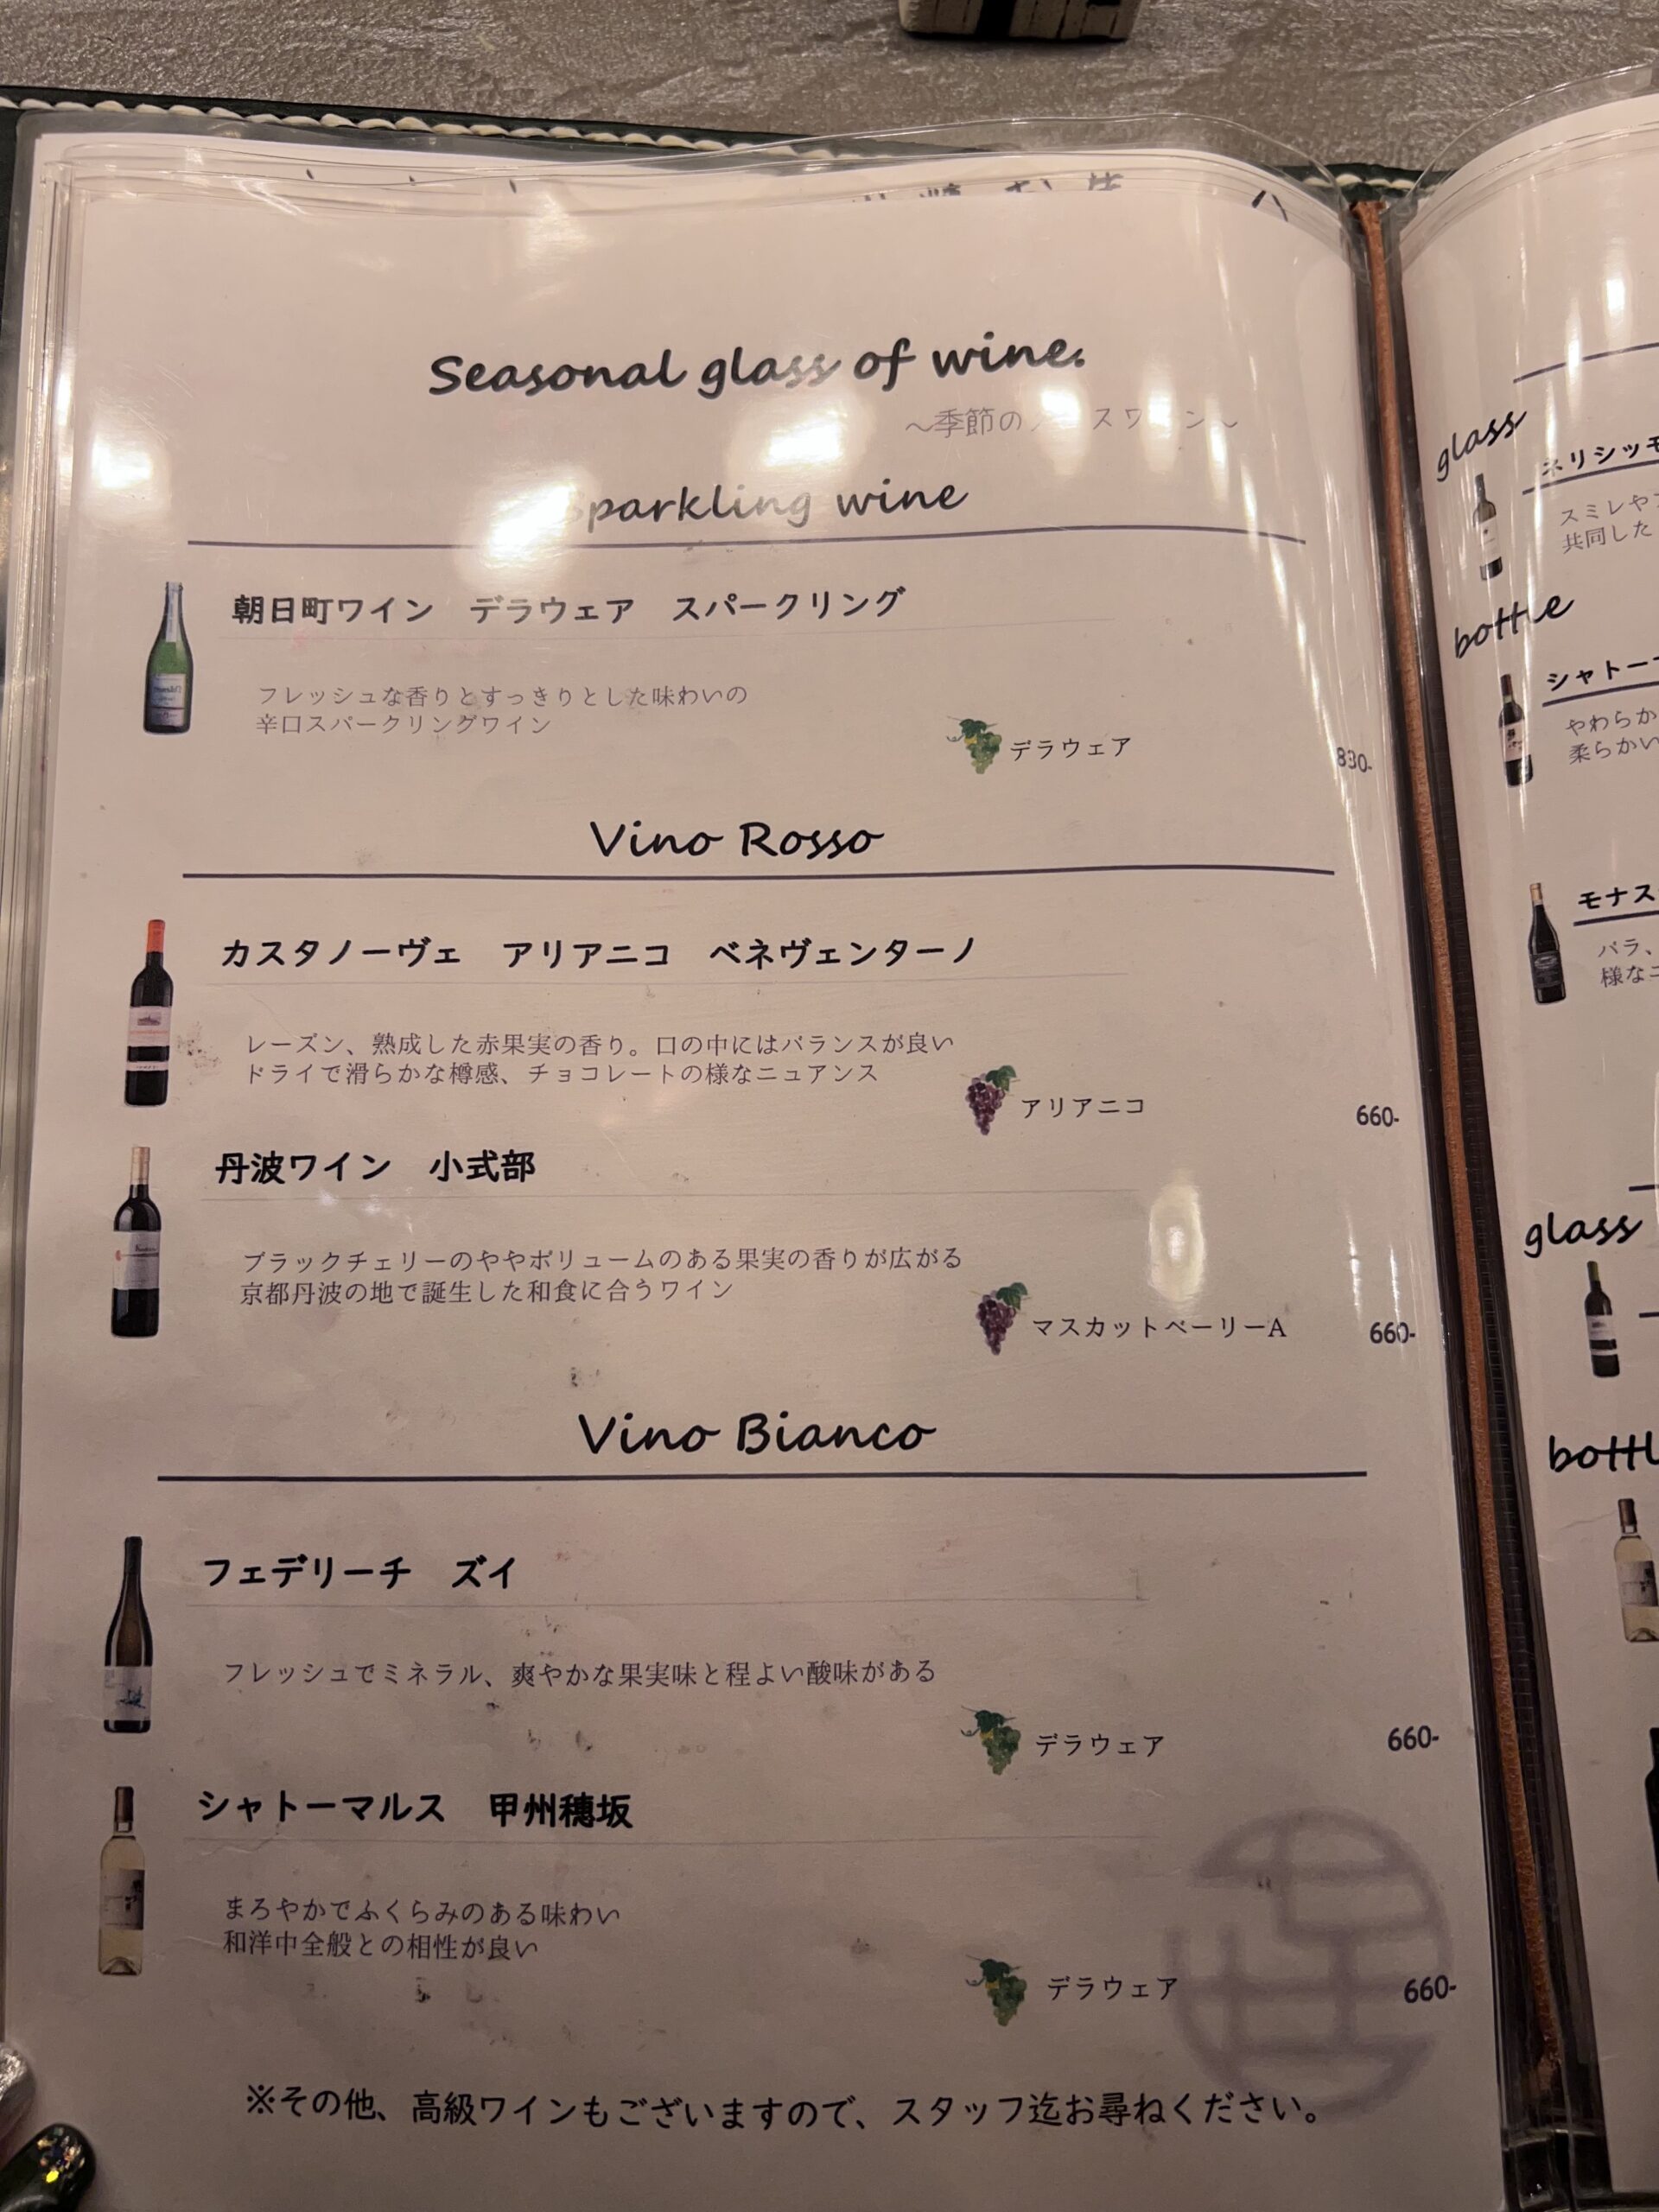 Seasonal glass of wine.
～季節の スワ ン～
Sparkling wine
朝日町ワイン デラウェア スパークリング
フレッシュな香りとすっきりとした味わいの
辛口スパークリングワイン
デラウェア
830-
Vino Rosso
カスタノーヴェ アリアニコ ベネヴェンターノ
レーズン、熟成した赤果実の香り。口の中にはバランスが良い
ドライで滑らかな樽感、チョコレートの様なニュアンス
アリアニコ
660-
丹波ワイン 小式部
ブラックチェリーのややボリュームのある果実の香りが広がる
京都丹波の地で誕生した和食に合うワイン
マスカットベーリーA
660-
Vino Bianco
フェデリーチ ズイ
フレッシュでミネラル、爽やかな果実味と程よい酸味がある
デラウェア
660-
シャトーマルス 甲州穂坂
まろやかでふくらみのある味わい
和洋中全般との相性が良い
デラウェア
660-
※その他、高級ワインもございますので、スタッフ迄お尋ねください。
glass
ネリシッモ
スミレや
共同した
bottle
シャトー
やわらか
柔らかい
モナス
バラ、
様なニ
glass
bottl